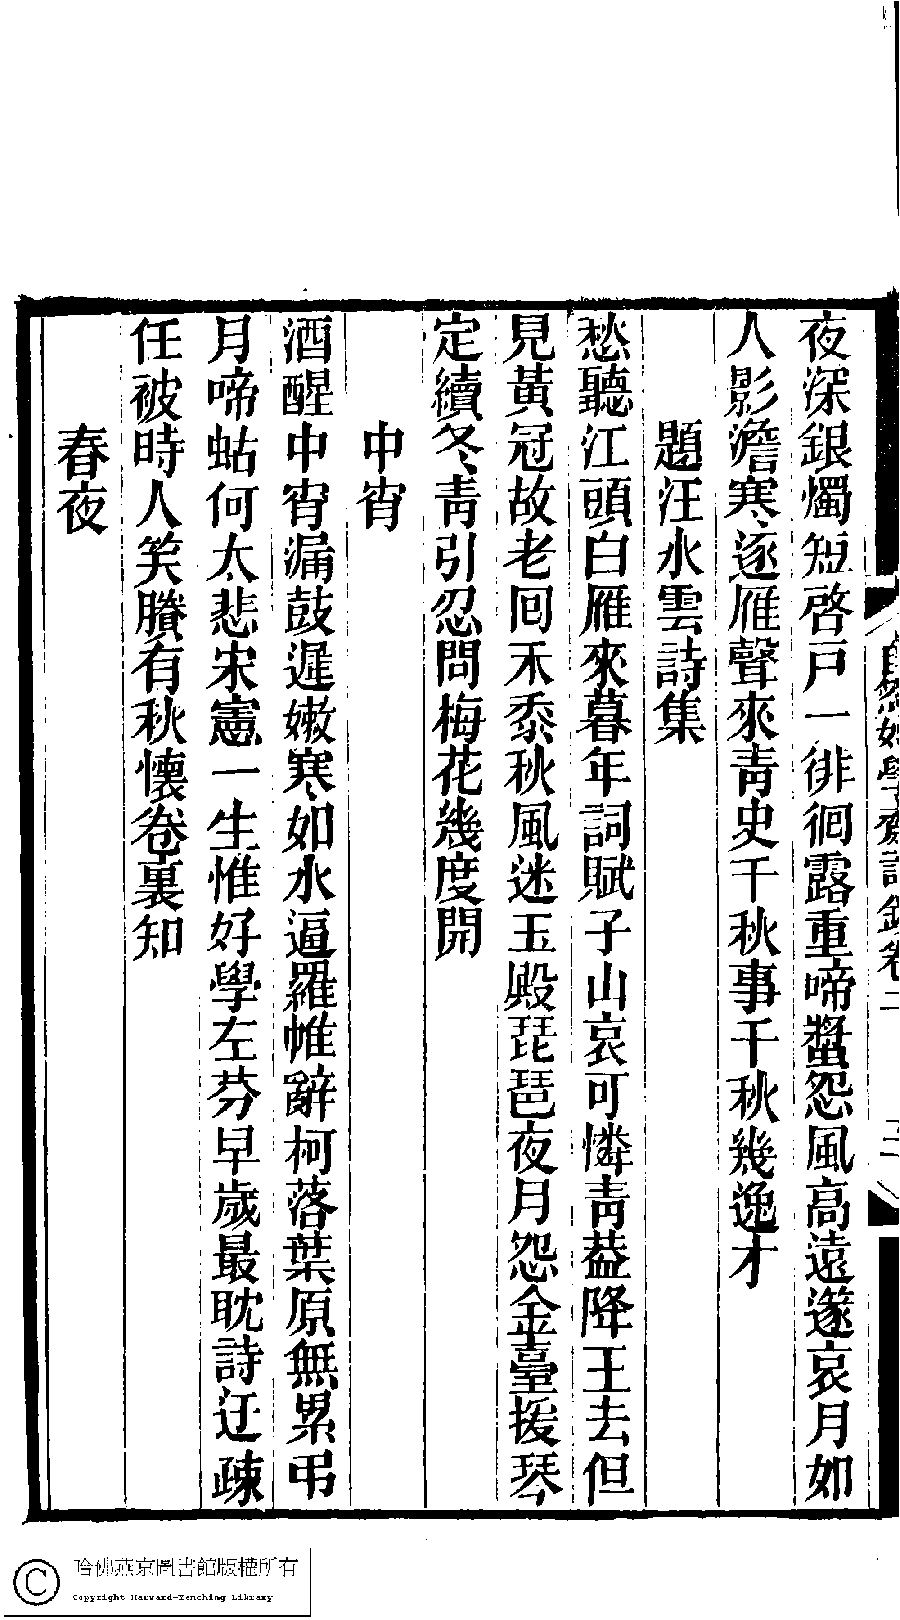 夜深銀燭短啓戸一徘徊露重啼螿怨風高遠邃哀月如
人影澹寒逐雁聲來青史千秋事千秋幾逸才
題汪水雲詩集
愁聽江頭白雁來暮年詞賦子山哀可憐青葢降王去但
見黃冠故老囘禾黍秋風迷玉殿琵琶夜月怨金臺援琴
定續冬青引忍問梅花幾度開
中宵
酒醒中宵漏鼓遲嫩寒如水逼羅帷辭柯落葉原無累弔
月啼蛄何太悲宋憲一生惟好學左芬早歲最耽詩迂疎
任被時人笑賸有秋懷卷裏知
春夜
自然好學齋詩鈔卷二
哈佛燕京圖書館版權所有
Copyright Harvard-Yenching Library